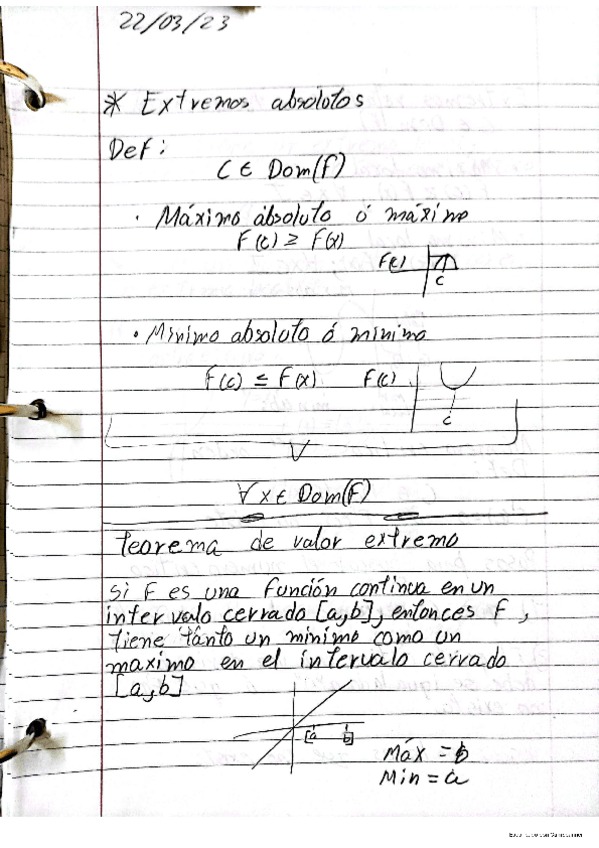 22/03/23
* Extremos absolutos
Def:
C ∈ Dom(f)
· Máximo absoluto ó máximo
F(c) ≥ F(x)
F(c)
c
· Mínimo absoluto ó mínimo
F(c) ≤ F(x) F(c)
c
∀ x ∈ Dom(F)
Teorema de valor extremo
Si F es una función continua en un
intervalo cerrado [a,b], entonces F,
tiene tanto un mínimo como un
maximo en el intervalo cerrado
[a,b]
[a b]
Máx = b
Min = a